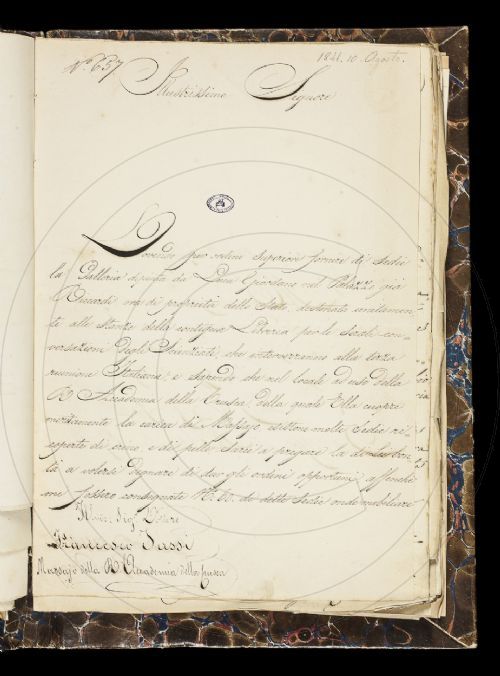 N.° 637
1841. 10. Agosto.
Illustrissimo Signore
Dovendo per ordini superiori fornire di Sedie
la Galleria dipinta da Luca Giordano nel Palazzo già
Riccardi ora di proprietà dello Stato, destinata unitamen-
te alle stanze della contigua Libreria per le Serali con-
versazioni degli Scienziati, che interverranno alla terza
riunione Italiana; e sapendo che nel locale ad uso della
R. Accademia della Crusca della quale Ella cuopre
meritamente la carica di Massajo esistono molte Sedie ri-
coperte di crine, e di pelle Sarei a pregare la di lei bon-
tà a volersi degnare di dare gli ordini opportuni affinché
me fossero consegnate N.° di dette Sedie onde mobiliare
Illmo. Sig. Dottore
Francesco Tassi
Massajo della R. Accademia della Crusca